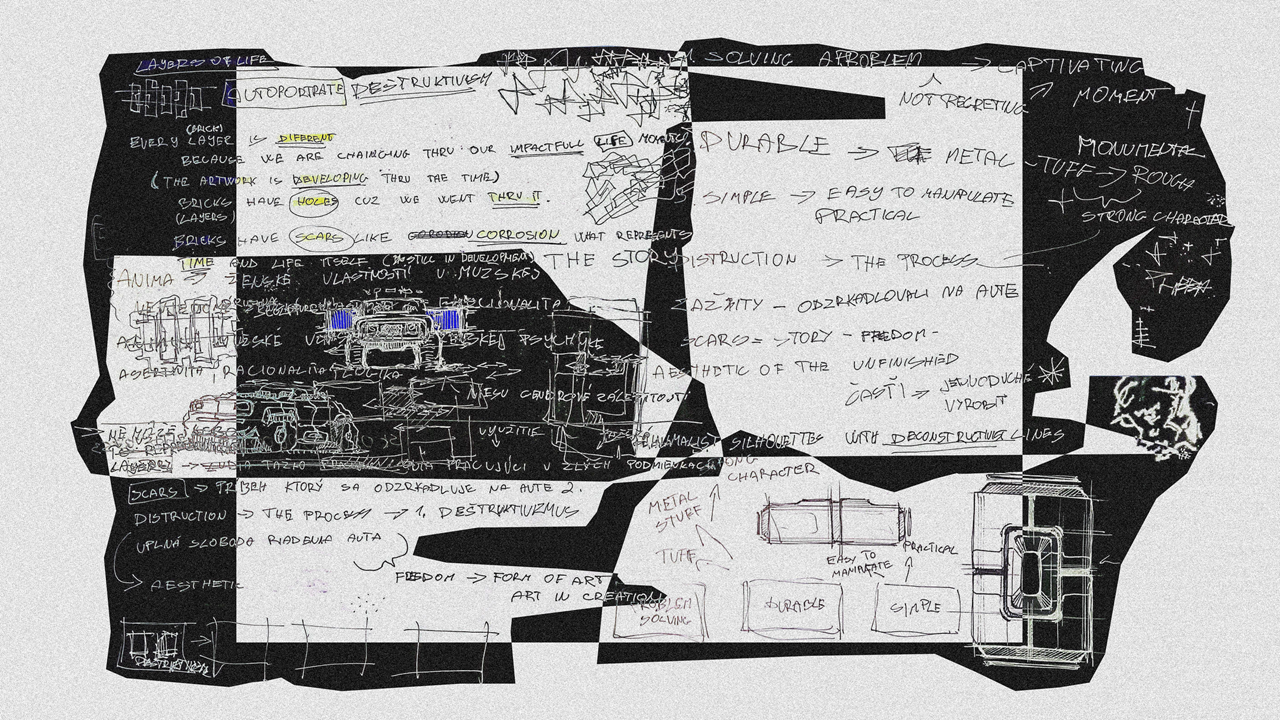 LAYERS OF LIFE
AUTOPORTRATE DESTRUKTIVISM
(BRICK)
EVERY LAYER IS DIFERENT
BECAUSE WE ARE CHAINGING THRU OUR IMPACTFULL LIFE MOMENTS
(THE ARTWORK IS DEVELOPING THRU THE TIME)
BRICKS HAVE HOLES CUZ WE WENT THRU IT.
(LAYERS)
BRICKS HAVE SCARS LIKE CORROSION WHAT REPRESENTS
TIME AND LIFE ITSELF (IN STILL IN DEVELOPMENT)
THE STORY
ANIMA ŽENSKÉ VLASTNOSTI U MUŽSKEJ
EMOCIONALITA
PSYCHYKE
ASERTIVITA, RACIONALITA, LOGIKA
NIESU GENDROVÉ ZÁLEŽITOSTI
VYUŽITIE
LAYERS → PRACUJÚCI V ZLÝCH PODMIENKACH
SCARS → PRÍBEH KTORÝ SA ODZRKADLUJE NA AUTE 2.
DISTRUCTION → THE PROCESS → 1, DESTRUKTIVIZMUS
UPLNA SLOBODA RIADENIA AUTA
AESTHETIC
FREEDOM → FORM OF ART
ART IN CREATION
SOLVING A PROBLEM → CAPTIVATING
MOMENT
NOT REGRETING
DURABLE → METAL
TUFF → ROUGH
MONUMENTAL
STRONG CHARACTER
SIMPLE → EASY TO MANIPULATE
PRACTICAL
DISTRUCTION → THE PROCESS
ZAŽITY - ODZRKADLOVALI NA AUTE
SCARS = STORY - FREEDOM -
AESTHETIC OF THE UNFINISHED
ČASTI → JEDNODUCHÉ
VYROBIT
MINIMALIST SILHOUETTES WITH DECONSTRUCTIVIST LINES
STRONG
CHARACTER
METAL
STUFF
TUFF
EASY TO
MANIPULATE
PRACTICAL
PROBLEM
SOLVING
DURABLE
SIMPLE